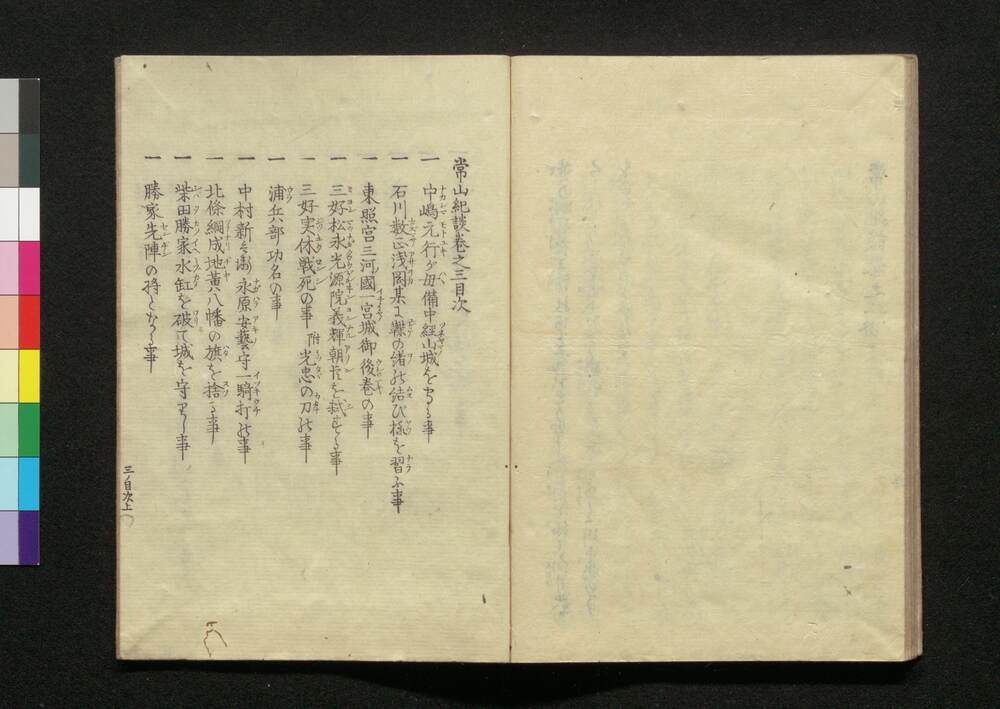 常山紀談巻之三目次
一 中嶋元行が母備中経山城を守る事
一 石川数正浅岡某に鞢の緒の結び様を習ふ事
一 東照宮三河國一宮城御後巻の事
一 三好松永光源院義輝朝臣を弑する事
一 三好実休戦死の事 附光忠の刀の事
一 浦兵部功名の事
一 中村新兵衛永原安藝守一騎打の事
一 北條綱成地黄八幡の旗を捨る事
一 柴田勝家水缸を破て城を守りし事
一 勝家先陣の将となる事
三ノ目次上